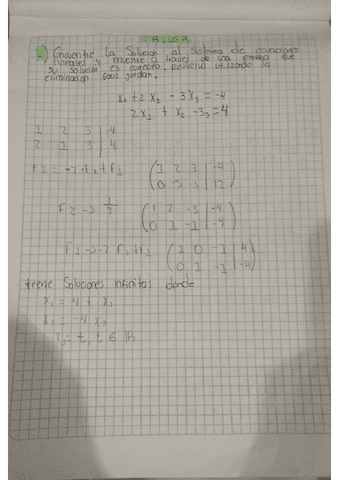 TALLER
Encuentre la Solucion al sistema de ecuaciones
lineales y muestre a través de una prueba que
su solucion es correcta. Resuelva utilizando la
eliminacion Gaus Jordan.
x₁ + 2x₂ - 3x₃ = -4
2x₁ + x₂ - 3₃ = 4
1 2 3 | -4
2 1 3 | 4
F2 = -2 · F₁ + F₂
( 1 2 3 | -4
0 3 3 | 12 )
F2 → 1/3
( 1 2 -3 | -4
0 1 -1 | -4 )
F1 → -2 F₂ + F₁
( 1 0 -1 | 4
0 1 -1 | -4 )
tiene Soluciones infinitas donde
x₁ = 4 + x₃
= -4 x₃
x₃ = t, t ∈ IR